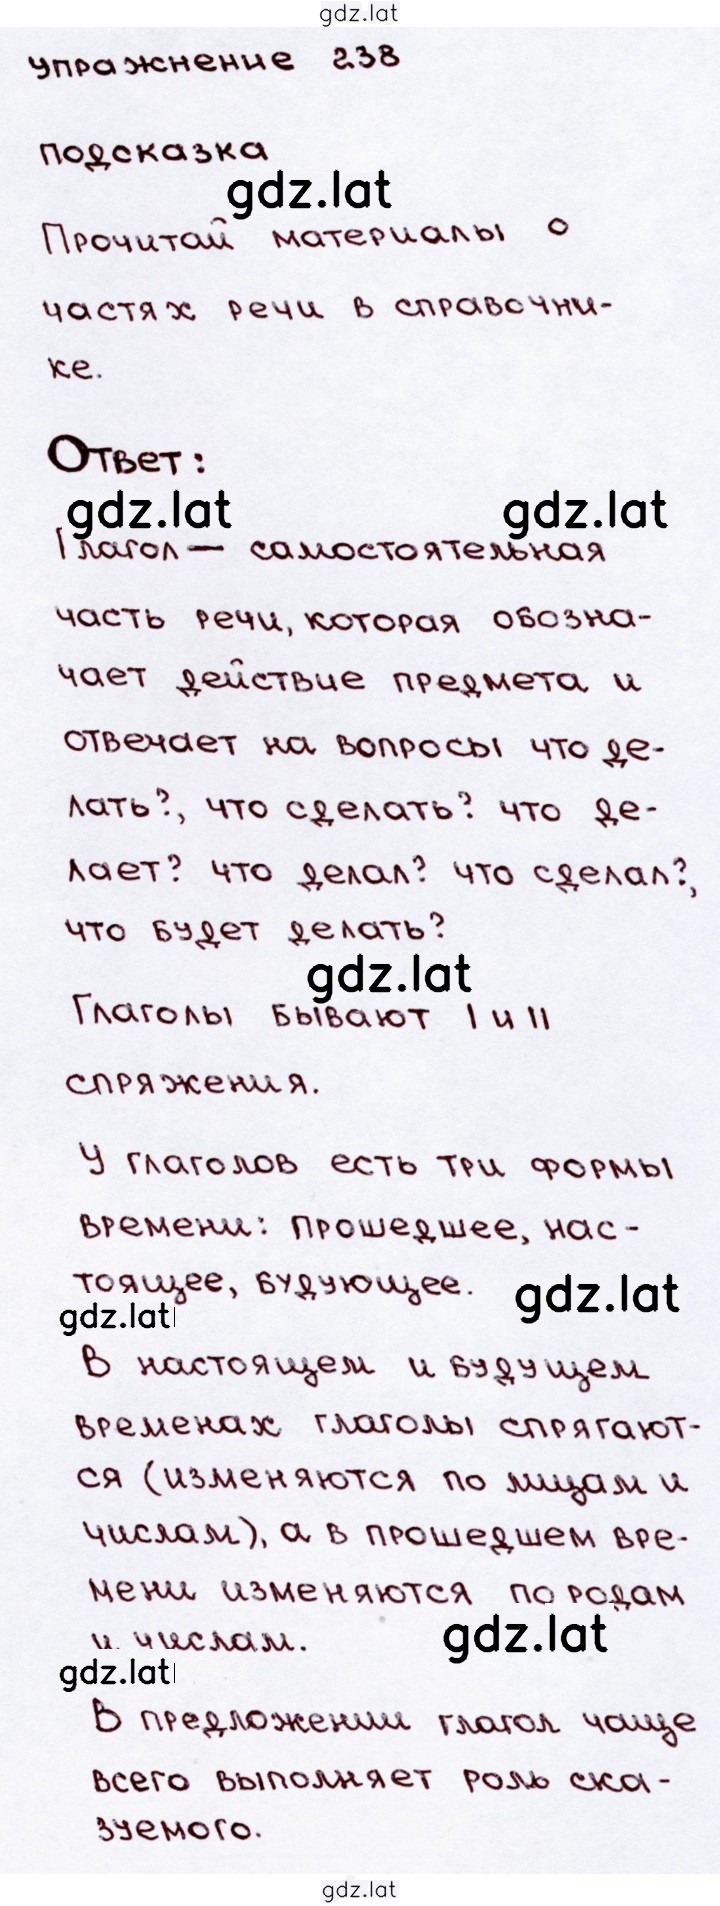 gdz.lat
упражнение 238
подсказка
gdz.lat
Прочитай материалы о
частях речи в справочни-
ке.
Ответ:
gdz.lat gdz.lat
Глагол — самостоятельная
часть речи, которая обозна-
чает действие предмета и
отвечает на вопросы что де-
лать?, что сделать? что де-
лает? что делал? что сделал?,
что будет делать?
gdz.lat
Глаголы бывают I и II
спряжения.
У глаголов есть три формы
времени: прошедшее, нас-
тоящее, будующее.
gdz.lat
gdz.lat
В настоящем и будущем
временах глаголы спрягают-
ся (изменяются по лицам и
числам), а в прошедшем вре-
мени изменяются по родам
и числам.
gdz.lat
gdz.lat
В предложении глагол чаще
всего выполняет роль ска-
зуемого.
gdz.lat